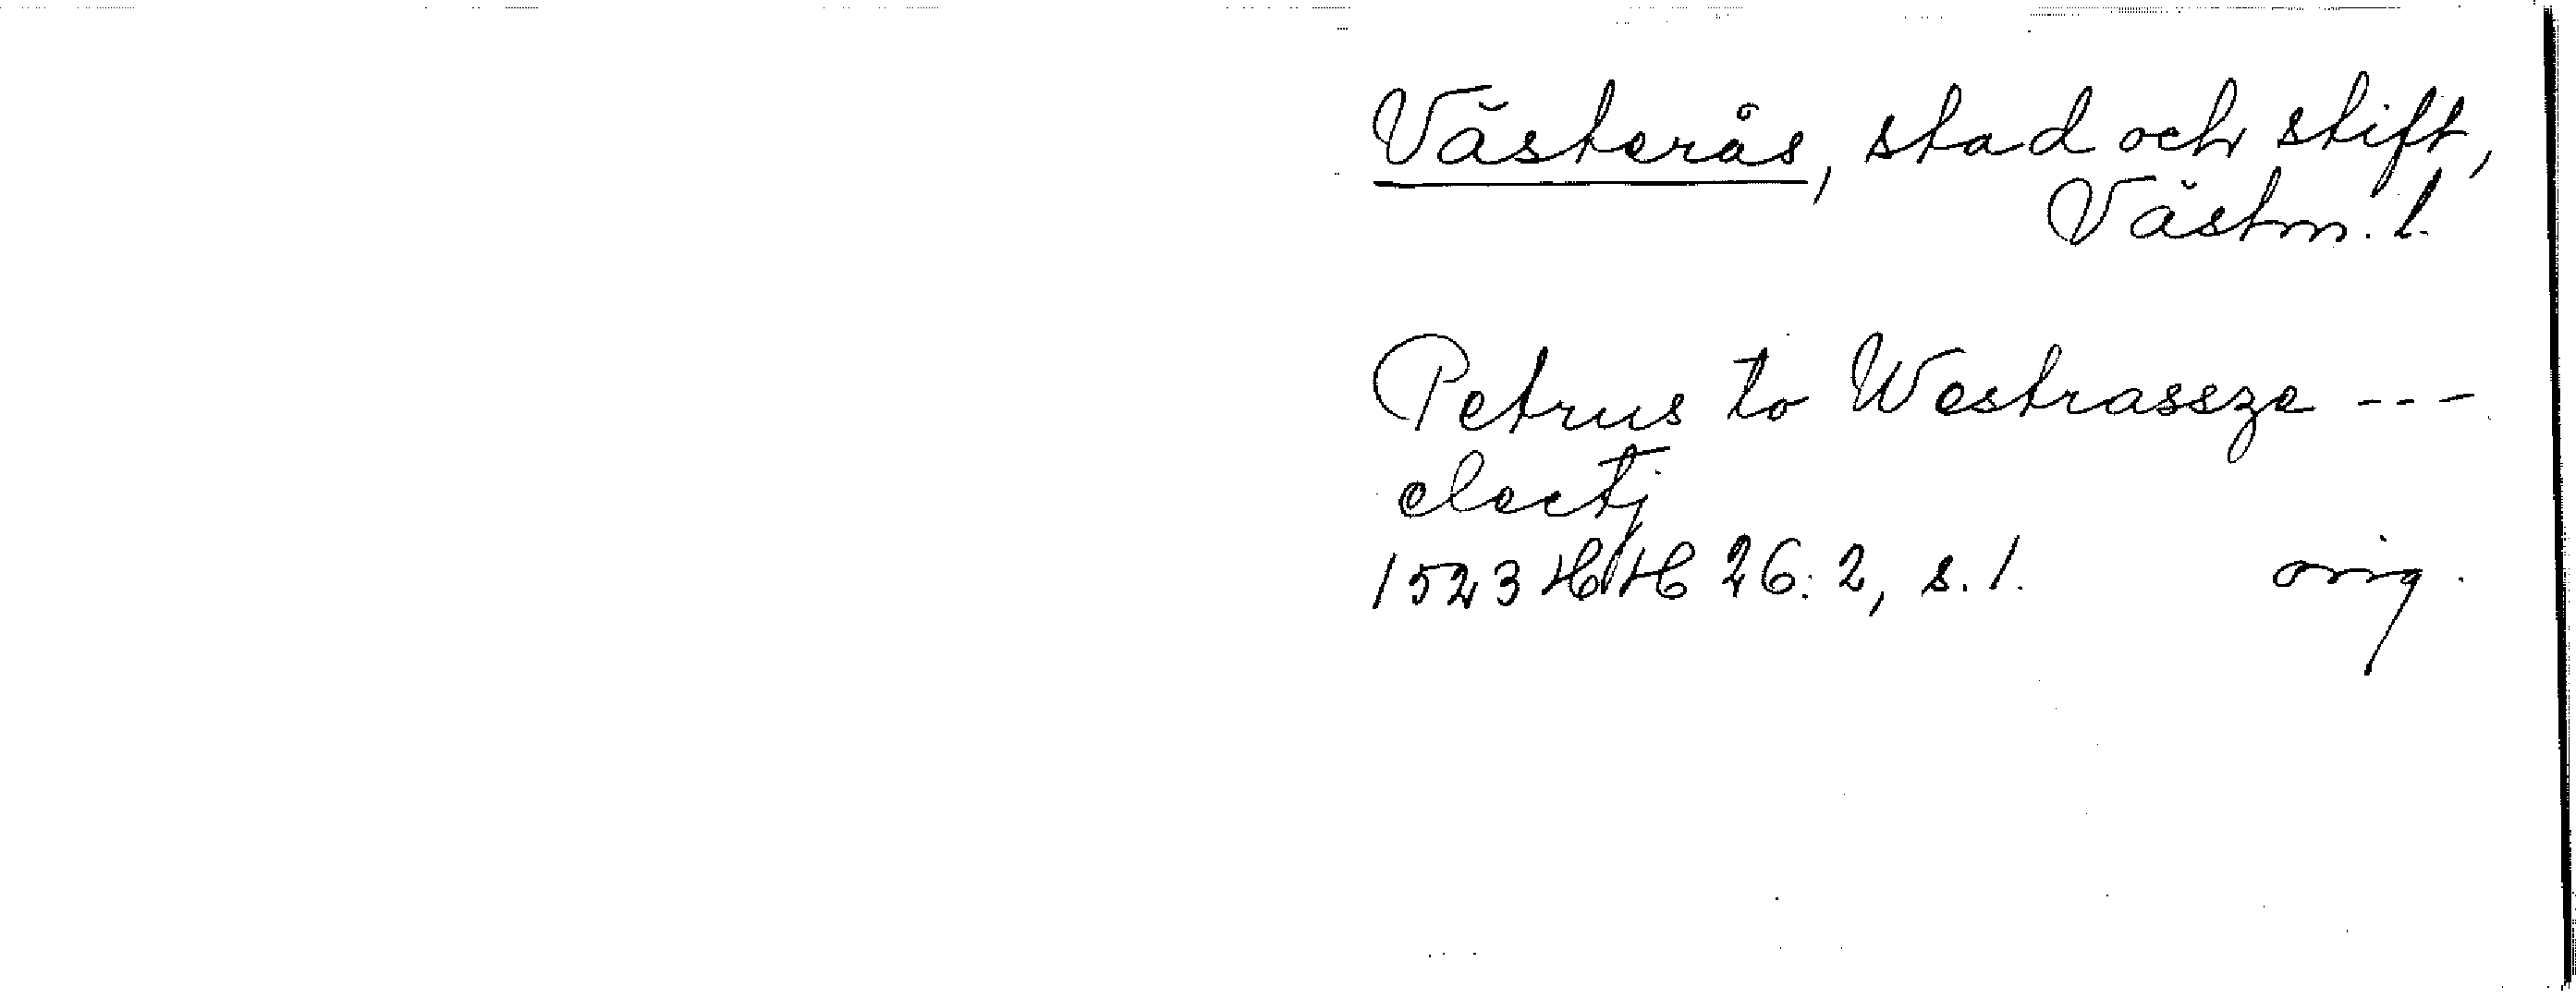 Västerås, stad och stift,
Västm. l.
Petrus to Westrassze ---
electj
1523 HH 26:2, s. 1. orig.